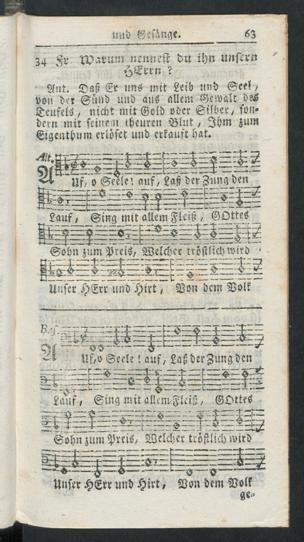 und Gesänge. 63
34 Fr. Warum nennest du ihn unsern
HErrn?
Ant. Daß Er uns mit Leib und Seel,
von der Sünd und aus allem Gewalt des
Teufels, nicht mit Gold oder Silber, son-
dern mit seinem theuren Blut, Ihm zum
Eigenthum erlöset und erkauft hat.
Alt.
Auf, o Seele! auf, Laß der Zung den
Lauf, Sing mit allem Fleiß, GOttes
Sohn zum Preis, Welcher tröstlich wird
Unser HErr und Hirt, Von dem Volk
Baß
Auf, o Seele! auf, Laß der Zung den
Lauf, Sing mit allem Fleiß, GOttes
Sohn zum Preis, Welcher tröstlich wird
Unser HErr und Hirt, Von dem Volk
ge-